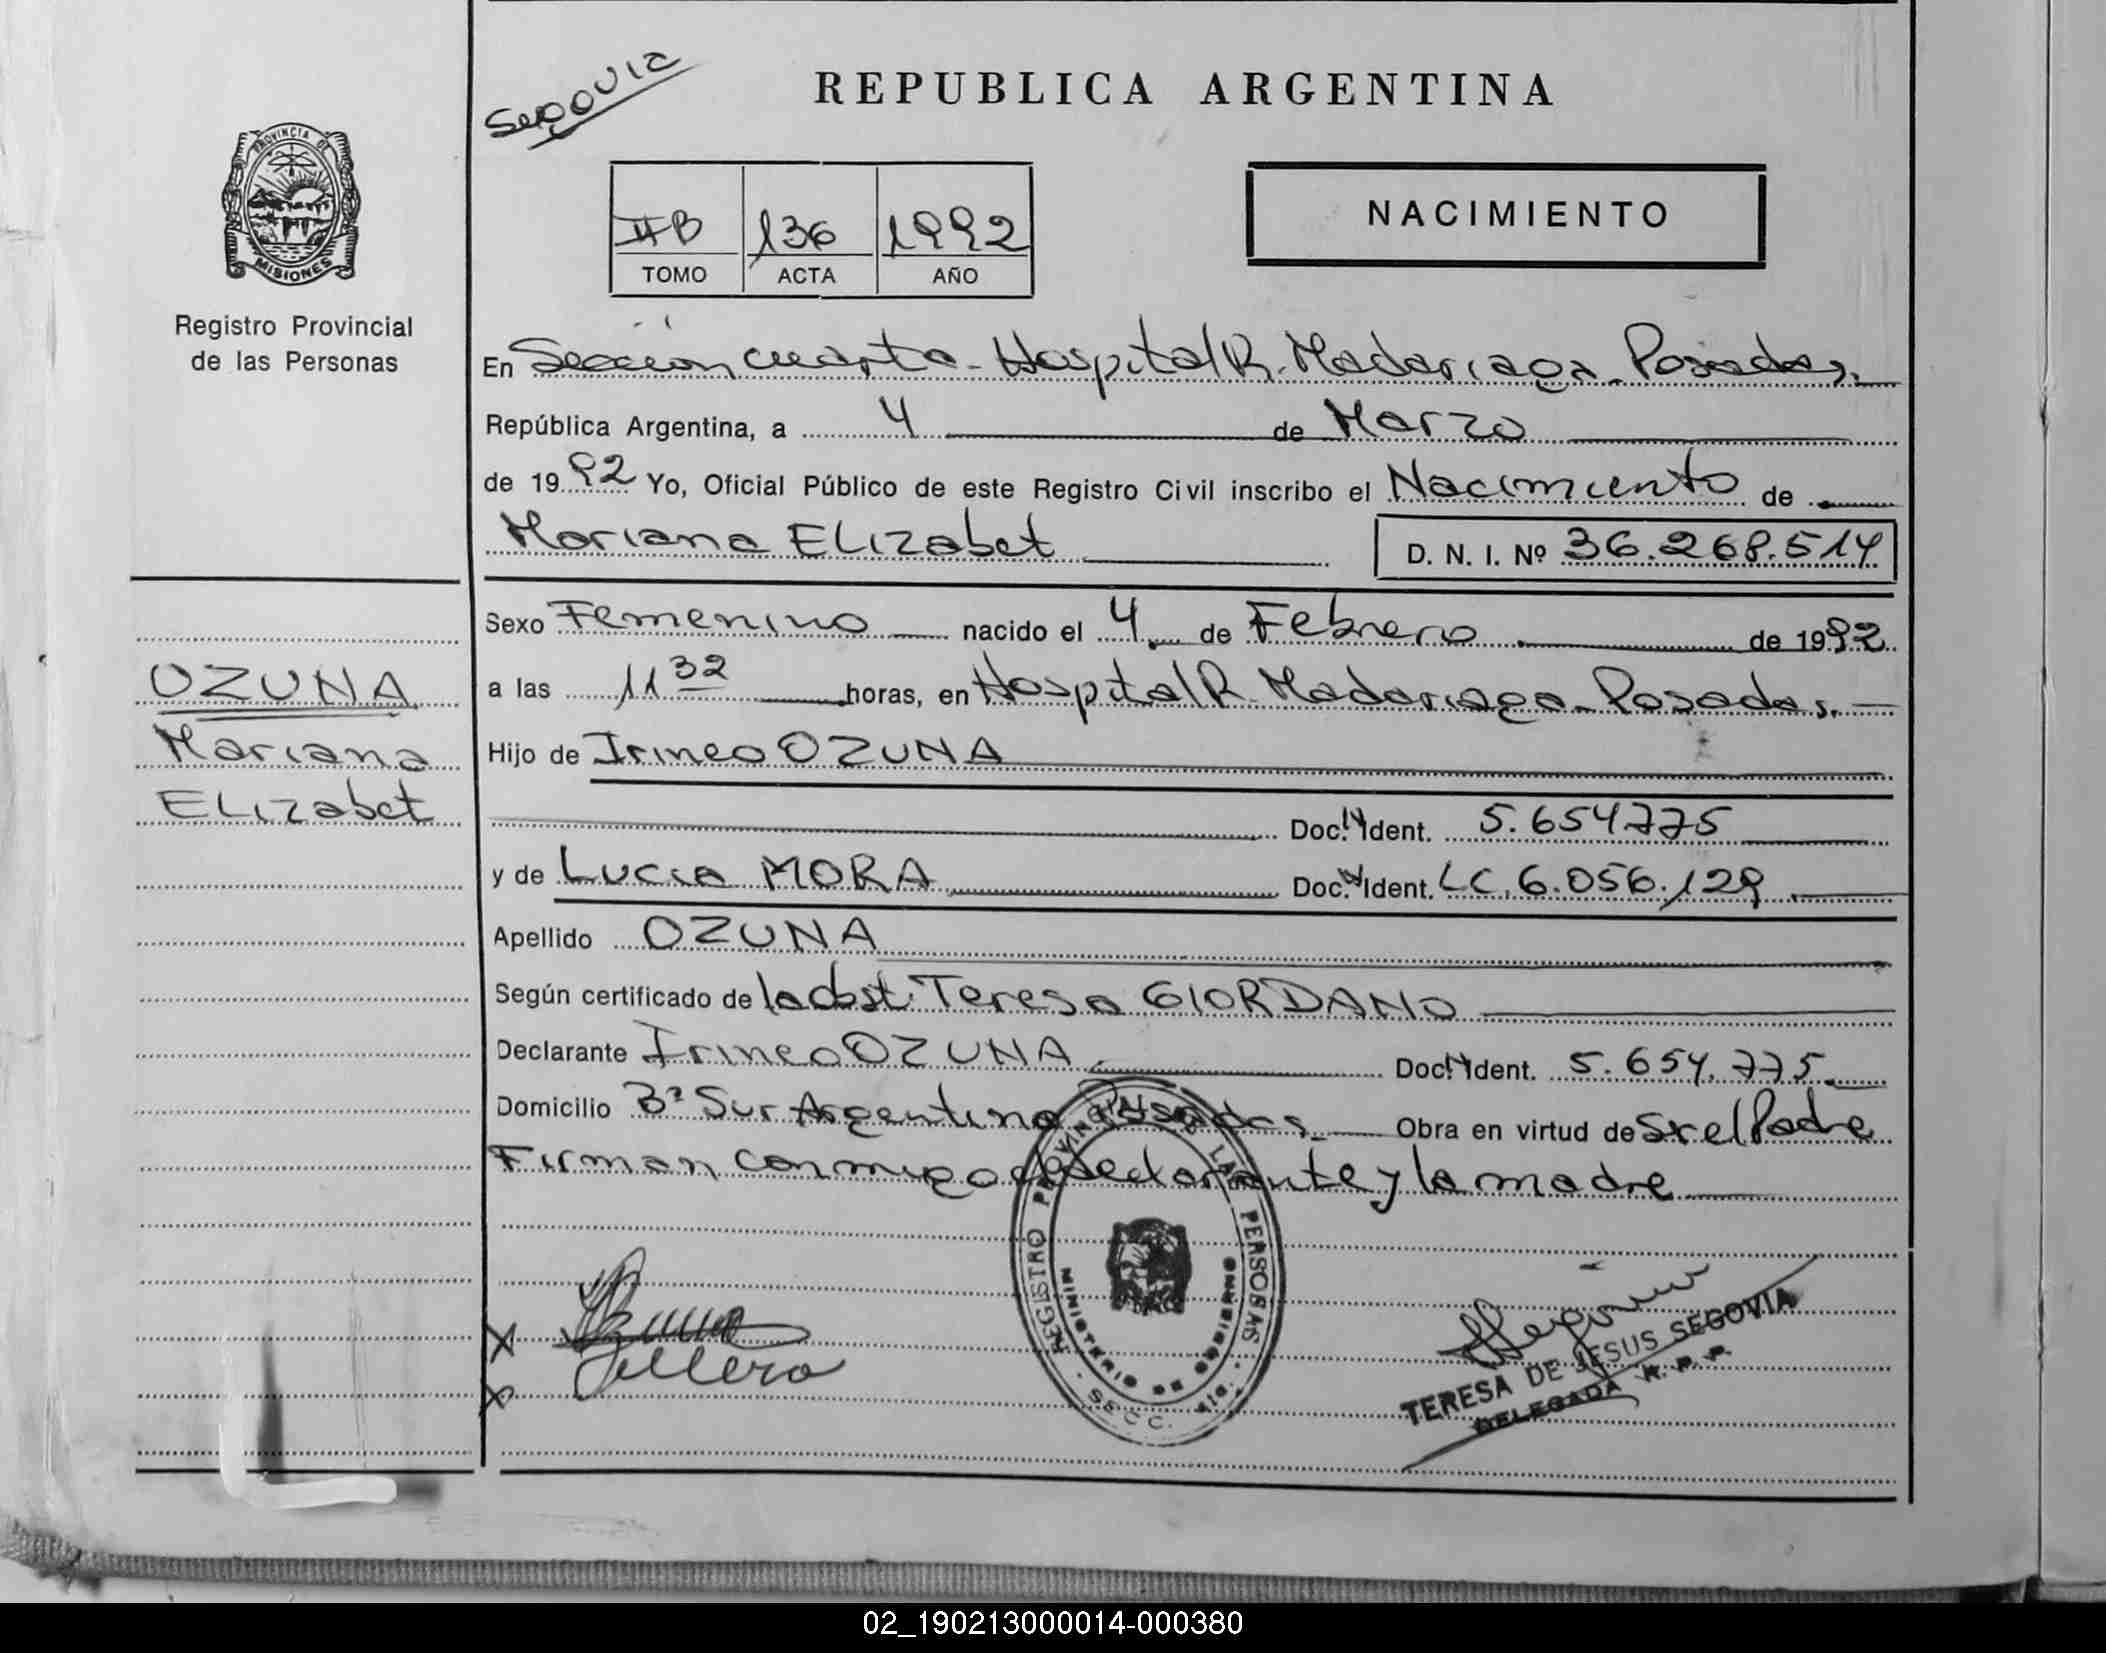 Segovia
REPUBLICA ARGENTINA
PROVINCIA DE
MISIONES
Registro Provincial
de las Personas
IIB 136 1992
TOMO ACTA AÑO
NACIMIENTO
En Sección cuarta - Hospital R. Madariaga - Posadas.
República Argentina, a 4 de Marzo
de 1992 Yo, Oficial Público de este Registro Civil inscribo el Nacimiento de
Mariana ELIZabet D. N. I. Nº 36.268.514
Sexo Femenino nacido el 4 de Febrero de 1992
OZUNA
Mariana
ELIZabet
a las 11 32 horas, en Hospital R. Madariaga - Posadas.
Hijo de Irineo OZUNA
Doc. Ident. 5.654775
y de Lucia MORA Doc. Ident. LC. 6.056.129
Apellido OZUNA
Según certificado de la obst. Teresa GIORDANO
Declarante Irineo OZUNA Doc. Ident. 5.654.775
Domicilio Bº Sur Argentino Posadas Obra en virtud de Ser el Padre
Firman conmigo el declarante y la madre
REGISTRO PROVINCIAL DE LAS PERSONAS
MINISTERIO DE GOBIERNO
SECC. 4ta.
TERESA DE JESUS SEGOVIA
DELEGADA R. P. P.
02_190213000014-000380